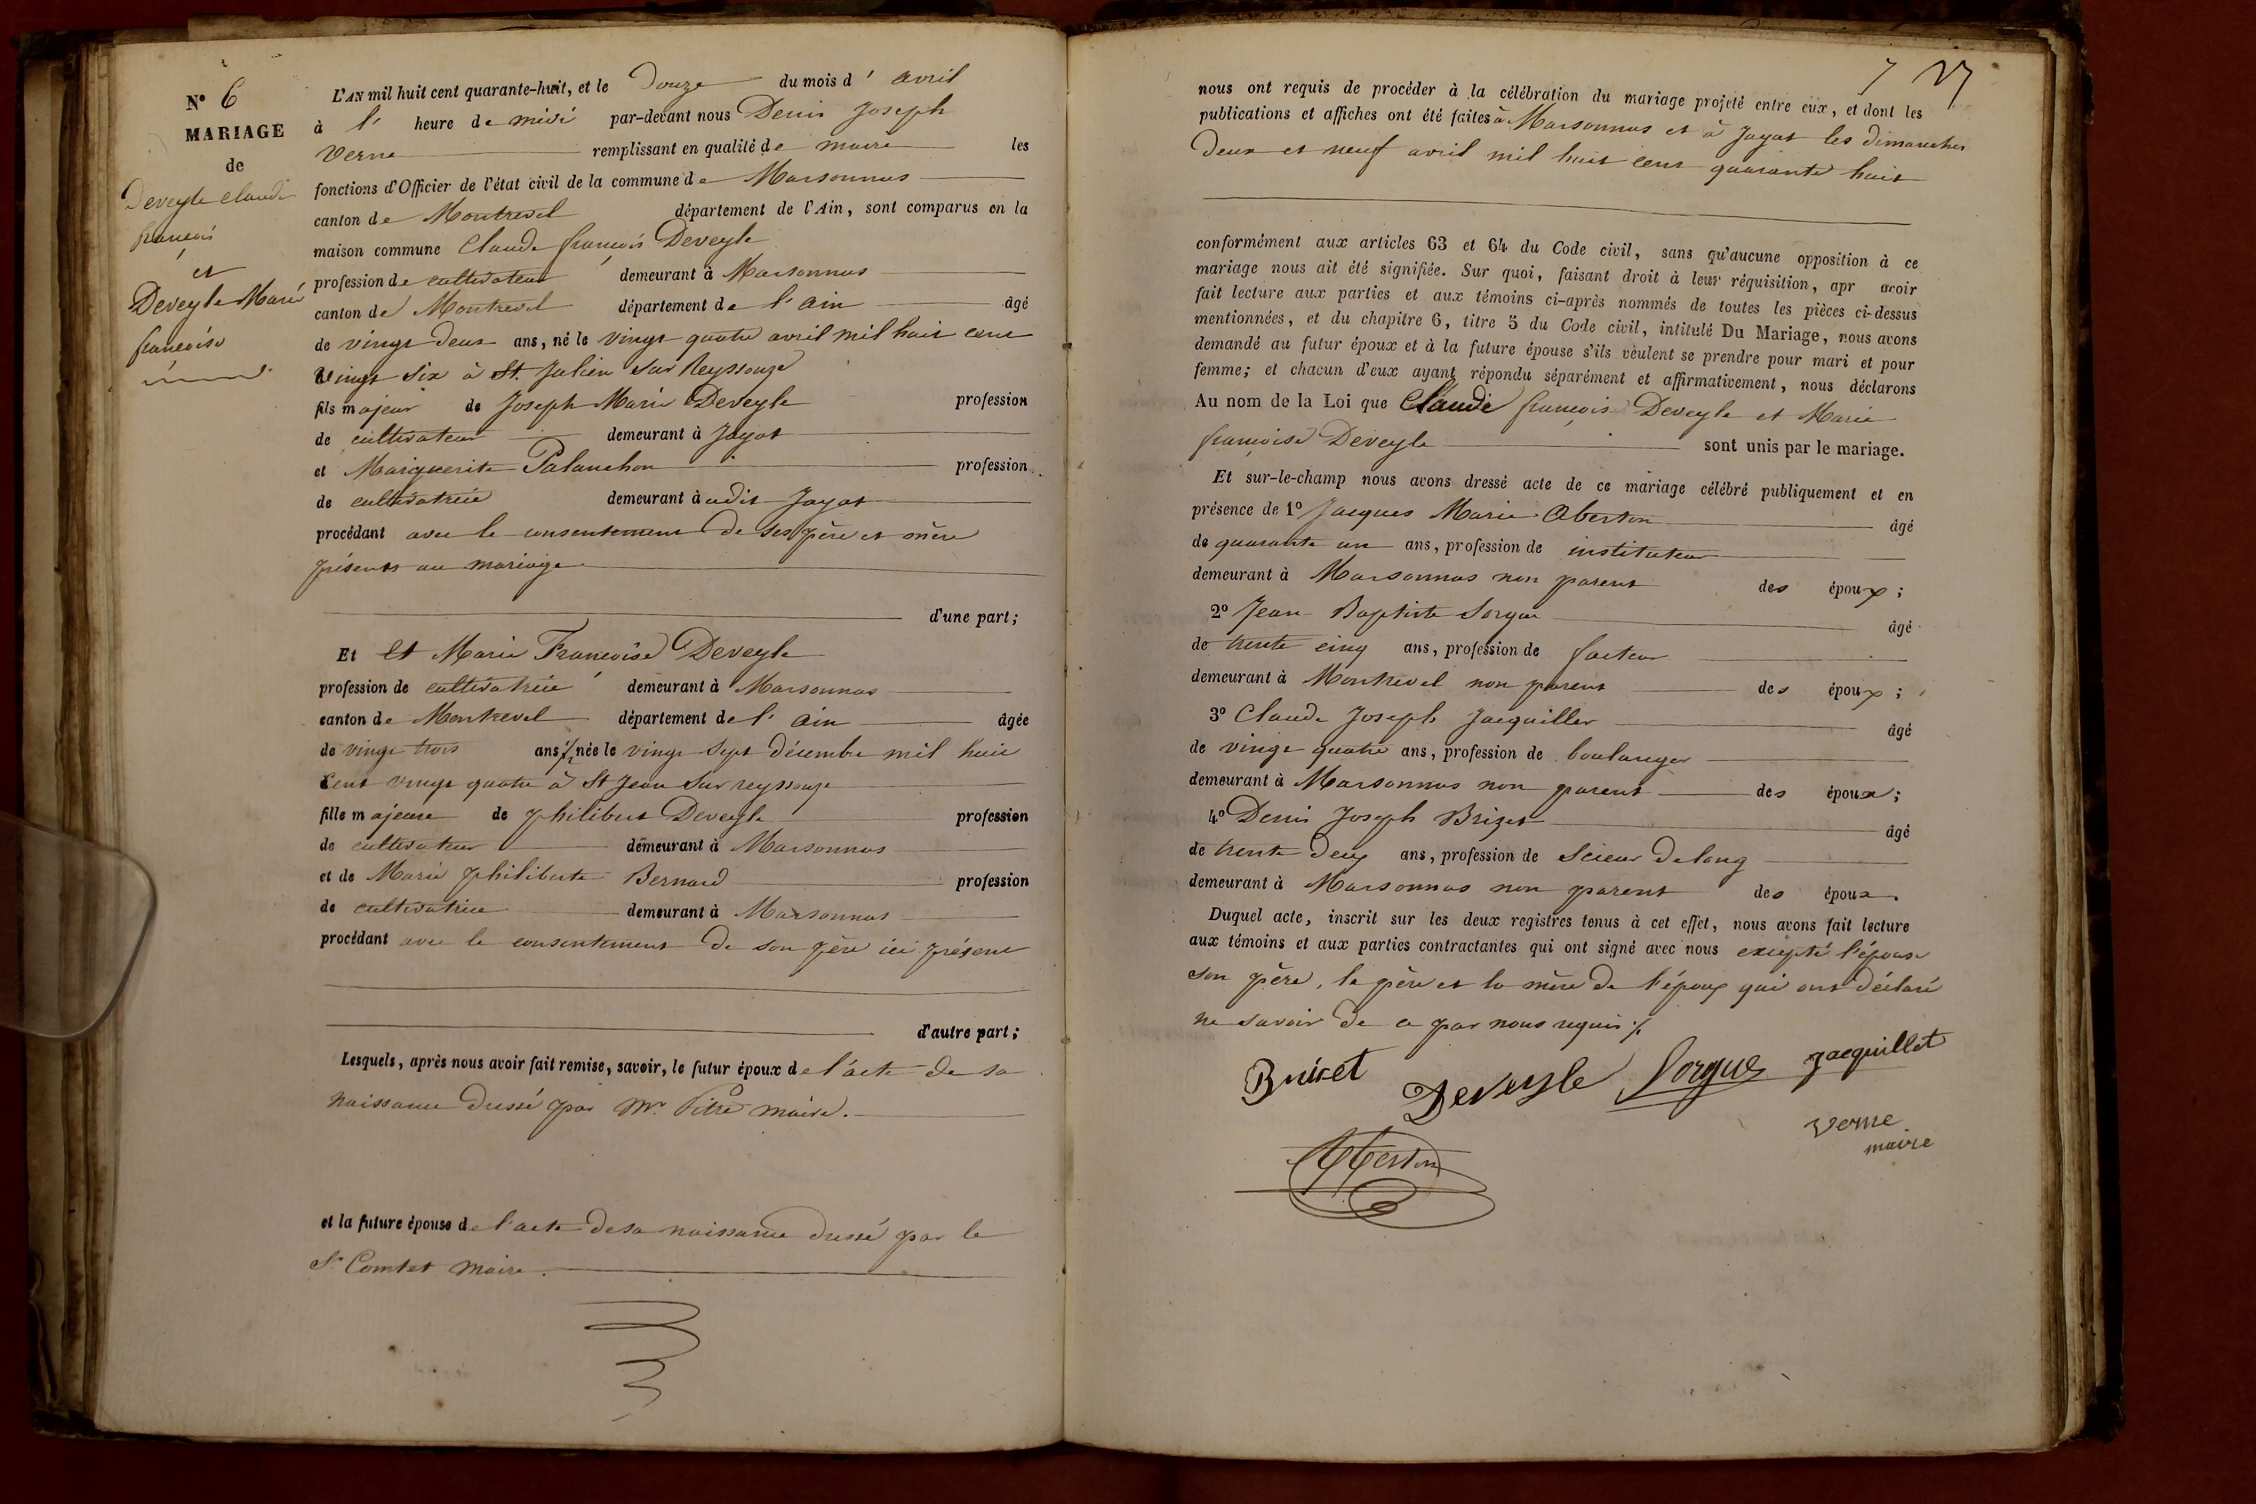 N° 6
MARIAGE
de
Deveyle Claude
françois
et
Deveyle Marie
françoise
L'AN mil huit cent quarante-huit, et le Douze du mois d'avril
à l'heure de midi par-devant nous Denis Joseph
Verne remplissant en qualité de maire les
fonctions d'Officier de l'état civil de la commune de Marsonnas
canton de Montrevel département de l'Ain, sont comparus en la
maison commune Claude françois Deveyle
profession de cultivateur demeurant à Marsonnas
canton de Montrevel département de l'ain âgé
de vingt deux ans, né le vingt quatre avril mil huit cent
vingt six à St. Julien sur Reyssouze
fils majeur de Joseph Marie Deveyle profession
de cultivateur demeurant à Jayat
et Marguerite Palanchon profession
de cultivatrice demeurant à udit Jayat
procédant avec le consentement de ses père et mère
présents au mariage
d'une part;
Et et Marie Françoise Deveyle
profession de cultivatrice demeurant à Marsonnas
canton de Montrevel département de l'ain âgée
de vingt trois ans 1/2 née le vingt sept décembre mil huit
cent vingt quatre à St Jean sur reyssouze
fille majeure de philibert Deveyle profession
de cultivateur demeurant à Marsonnas
et de Marie philiberte Bernard profession
de cultivatrice demeurant à Marsonnas
procédant avec le consentement de son père ici présent
d'autre part;
Lesquels, après nous avoir fait remise, savoir, le futur époux de l'acte de sa
naissance dressé par Mr. Pitre maire.
et la future épouse de l'acte de sa naissance dressé par le
Sr Comtet maire.
7 17
nous ont requis de procéder à la célébration du mariage projeté entre eux, et dont les
publications et affiches ont été faites à Marsonnas et à Jayat les dimanches
deux et neuf avril mil huit cent quarante huit
conformément aux articles 63 et 64 du Code civil, sans qu'aucune opposition à ce
mariage nous ait été signifiée. Sur quoi, faisant droit à leur réquisition, apr avoir
fait lecture aux parties et aux témoins ci-après nommés de toutes les pièces ci-dessus
mentionnées, et du chapitre 6, titre 5 du Code civil, intitulé Du Mariage, nous avons
demandé au futur époux et à la future épouse s'ils veulent se prendre pour mari et pour
femme; et chacun d'eux ayant répondu séparément et affirmativement, nous déclarons
Au nom de la Loi que Claude françois Deveyle et Marie
françoise Deveyle sont unis par le mariage.
Et sur-le-champ nous avons dressé acte de ce mariage célébré publiquement et en
présence de 1° Jacques Marie Oberton âgé
de quarante un ans, profession de instituteur
demeurant à Marsonnas non parent des époux;
2° Jean Baptiste Sorgue âgé
de trente cinq ans, profession de facteur
demeurant à Montrevel non parent des époux;
3° Claude Joseph Jacquillet âgé
de vingt quatre ans, profession de boulanger
demeurant à Marsonnas non parent des époux;
4° Denis Joseph Brizet âgé
de trente deux ans, profession de scieur de long
demeurant à Marsonnas non parent des époux.
Duquel acte, inscrit sur les deux registres tenus à cet effet, nous avons fait lecture
aux témoins et aux parties contractantes qui ont signé avec nous excepté l'épouse
son père, le père et la mère de l'époux qui ont déclaré
ne savoir de ce par nous requis ./.
Briset Deveyle Sorgue Jacquillet
Verne
maire